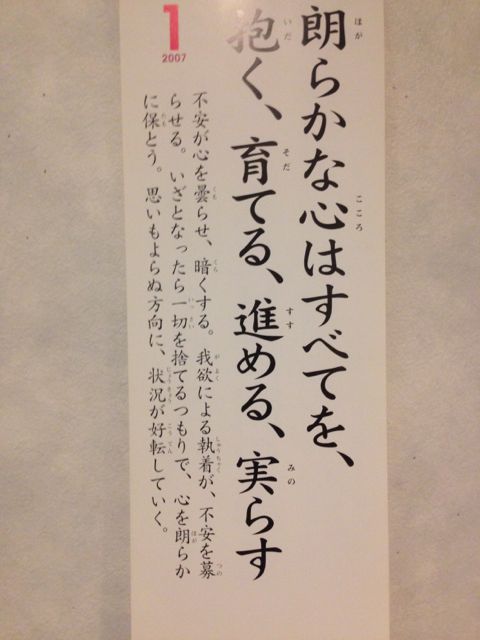 朗らかな心はすべてを、
抱く、育てる、進める、実らす
1
2007
不安が心を曇らせ、暗くする。我欲による執着が、不安を募
らせる。いざとなったら一切を捨てるつもりで、心を朗らか
に保とう。思いもよらぬ方向に、状況が好転していく。